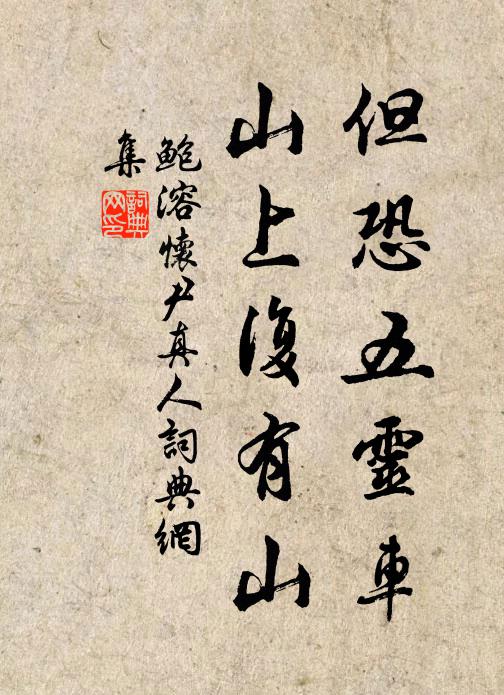 但恐五靈車
山上復有山
鮑溶懷尹真人詞典網
集
詞典
网印